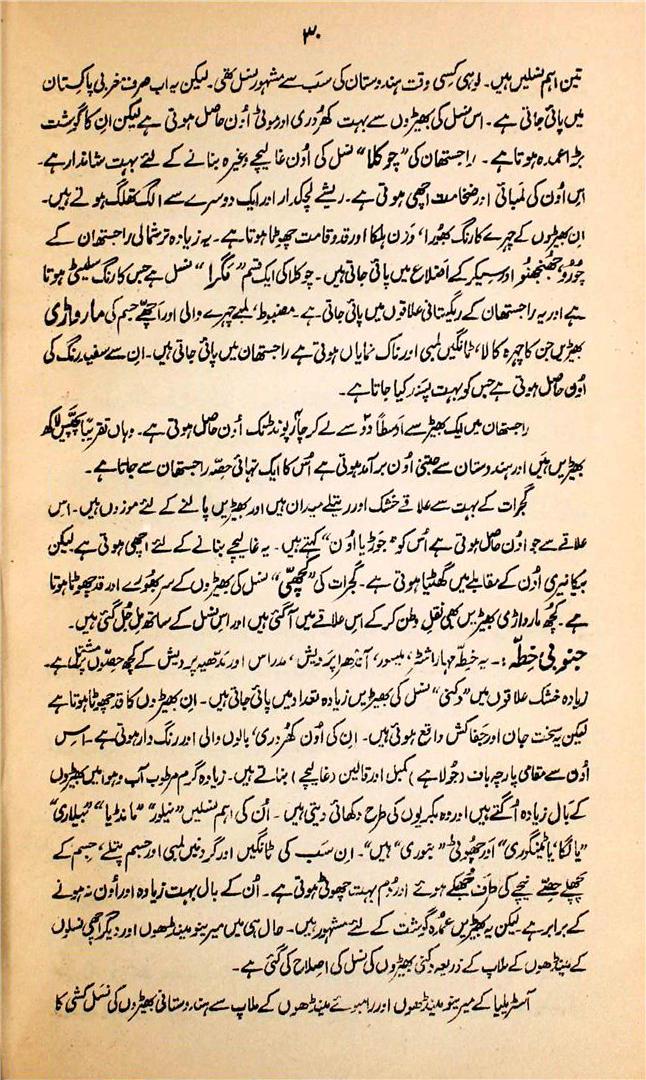 ۳۰
تین اہم نسلیں ہیں۔ لوہی کسی وقت ہندوستان کی سب سے مشہور نسل تھی۔ لیکن یہ اب صرف مغربی پاکستان
میں پائی جاتی ہے۔ اس نسل کی بھیڑوں سے بہت کھردری اور موٹی اُون حاصل ہوتی ہے لیکن ان کا گوشت
بڑا عمدہ ہوتا ہے۔ راجستھان کی ”چوکلا“ نسل کی اُون غالیچے وغیرہ بنانے کے لئے بہت شاندار ہے۔
اس اُون کی لمبائی اور ضخامت اچھی ہوتی ہے۔ ریشے لچکدار اور ایک دوسرے سے الگ تھلگ ہوتے ہیں۔
ان بھیڑوں کے چہرے کا رنگ بھُورا، وزن ہلکا اور قد و قامت چھوٹا ہوتا ہے۔ یہ زیادہ تر شمالی راجستھان کے
چُورو، جھُنجھنُو اور سیکر کے اضلاع میں پائی جاتی ہیں۔ چوکلا کی ایک قسم ”مگرا“ نسل ہے جس کا رنگ سلیٹی ہوتا
ہے اور یہ راجستھان کے ریگستانی علاقوں میں پائی جاتی ہے۔ مضبوط، لمبے چہرے والی اور اچھے جسم کی مارواڑی
بھیڑیں جن کا چہرہ کالا، ٹانگیں لمبی اور ناک نمایاں ہوتی ہے راجستھان میں پائی جاتی ہیں۔ ان سے سفید رنگ کی
اُون حاصل ہوتی ہے جس کو بہت پسند کیا جاتا ہے۔
راجستھان میں ایک بھیڑ سے اوسطاً دو سے لے کر چار پونڈ تک اُون حاصل ہوتی ہے۔ وہاں تقریباً پچپّیس لاکھ
بھیڑیں ہیں اور ہندوستان سے جتنی اُون برآمد ہوتی ہے اُس کا ایک تہائی حصّہ راجستھان سے جاتا ہے۔
گجرات کے بہت سے علاقے خشک اور ریتلے میدان ہیں اور بھیڑیں پالنے کے لئے موزوں ہیں۔ اس
علاقے سے جو اُون حاصل ہوتی ہے اُس کو ”جوڑیا اُون“ کہتے ہیں۔ یہ غالیچے بنانے کے لئے اچھی ہوتی ہے لیکن
بیکانیری اُون کے مقابلے میں گھٹیا ہوتی ہے۔ گجرات کی ”کچھّی“ نسل کی بھیڑوں کے سر بھُورے اور قد چھوٹا ہوتا
ہے۔ کچھ مارواڑی بھیڑیں بھی نقلِ وطن کر کے اس علاقے میں آگئی ہیں اور اس نسل کے ساتھ مل جُل گئی ہیں۔
جنوبی خطّہ:۔ یہ خطّہ مہاراشٹر، میسور، آندھرا پردیش، مدراس اور مدھیہ پردیش کے کچھ حصّوں پر مشتمل ہے۔
زیادہ خشک علاقوں میں ”دکنی“ نسل کی بھیڑیں زیادہ تعداد میں پائی جاتی ہیں۔ ان بھیڑوں کا قد چھوٹا ہوتا ہے
لیکن یہ سخت جان اور جفاکش واقع ہوئی ہیں۔ ان کی اُون کھُردری، بالوں والی اور رنگ دار ہوتی ہے۔ اس
اُون سے مقامی پارچہ باف (جولاہے) کمبل اور قالین (غالیچے) بناتے ہیں۔ زیادہ گرم مرطوب آب و ہوا میں بھیڑوں
کے بال زیادہ اُگتے ہیں اور وہ بکریوں کی طرح دکھائی دیتی ہیں۔ اُن کی اہم نسلیں ”نیلور“ ”مانڈیا“ ”بیلاری“
”یالگا، یا ٹینگوری“ اور چھوٹی ”بنوری“ ہیں“۔ ان سب کی ٹانگیں اور گردنیں لمبی اور جسم پتلے، جسم کے
پچھلے حِصّے نیچے کی طرف جھُکے ہوئے اور دُم بہت چھوٹی ہوتی ہے۔ اُن کے بال بہت زیادہ اور اُون نہ ہونے
کے برابر ہے لیکن یہ بھیڑیں عمدہ گوشت کے لئے مشہور ہیں۔ حال ہی میں میرینو مینڈھوں اور دیگر اچھی نسلوں
کے مینڈھوں کے ملاپ کے ذریعہ دکنی بھیڑوں کی نسل کی اصلاح کی گئی ہے۔
آسٹریلیا کے میرینو مینڈھوں اور رامبوئے مینڈھوں کے ملاپ سے ہندوستانی بھیڑوں کی نسل کشی کا